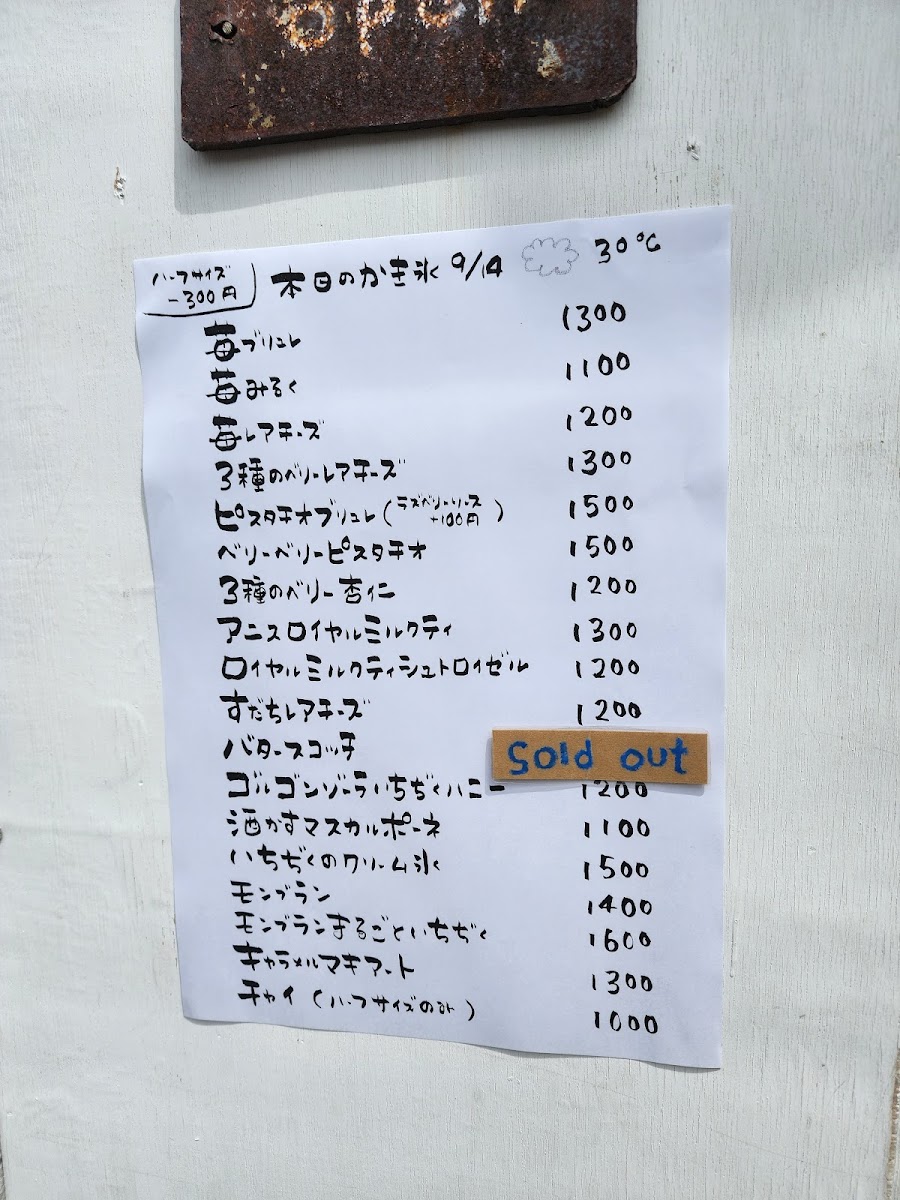 open
ハーフサイズ
-300円
本日のかき氷 9/14 30℃
苺ブリュレ 1300
苺みるく 1100
苺レアチーズ 1200
3種のベリーレアチーズ 1300
ピスタチオブリュレ(ラズベリーソース +100円) 1500
ベリーベリーピスタチオ 1500
3種のベリー杏仁 1200
アニスロイヤルミルクティ 1300
ロイヤルミルクティシュトロイゼル 1200
すだちレアチーズ 1200
バタースコッチ Sold out
ゴルゴンゾーライちぢくハニー 1200
酒かすマスカルポーネ 1100
いちぢくのクリーム氷 1500
モンブラン 1400
モンブランまるごといちぢく 1600
キャラメルマキアート 1300
チャイ(ハーフサイズのみ) 1000